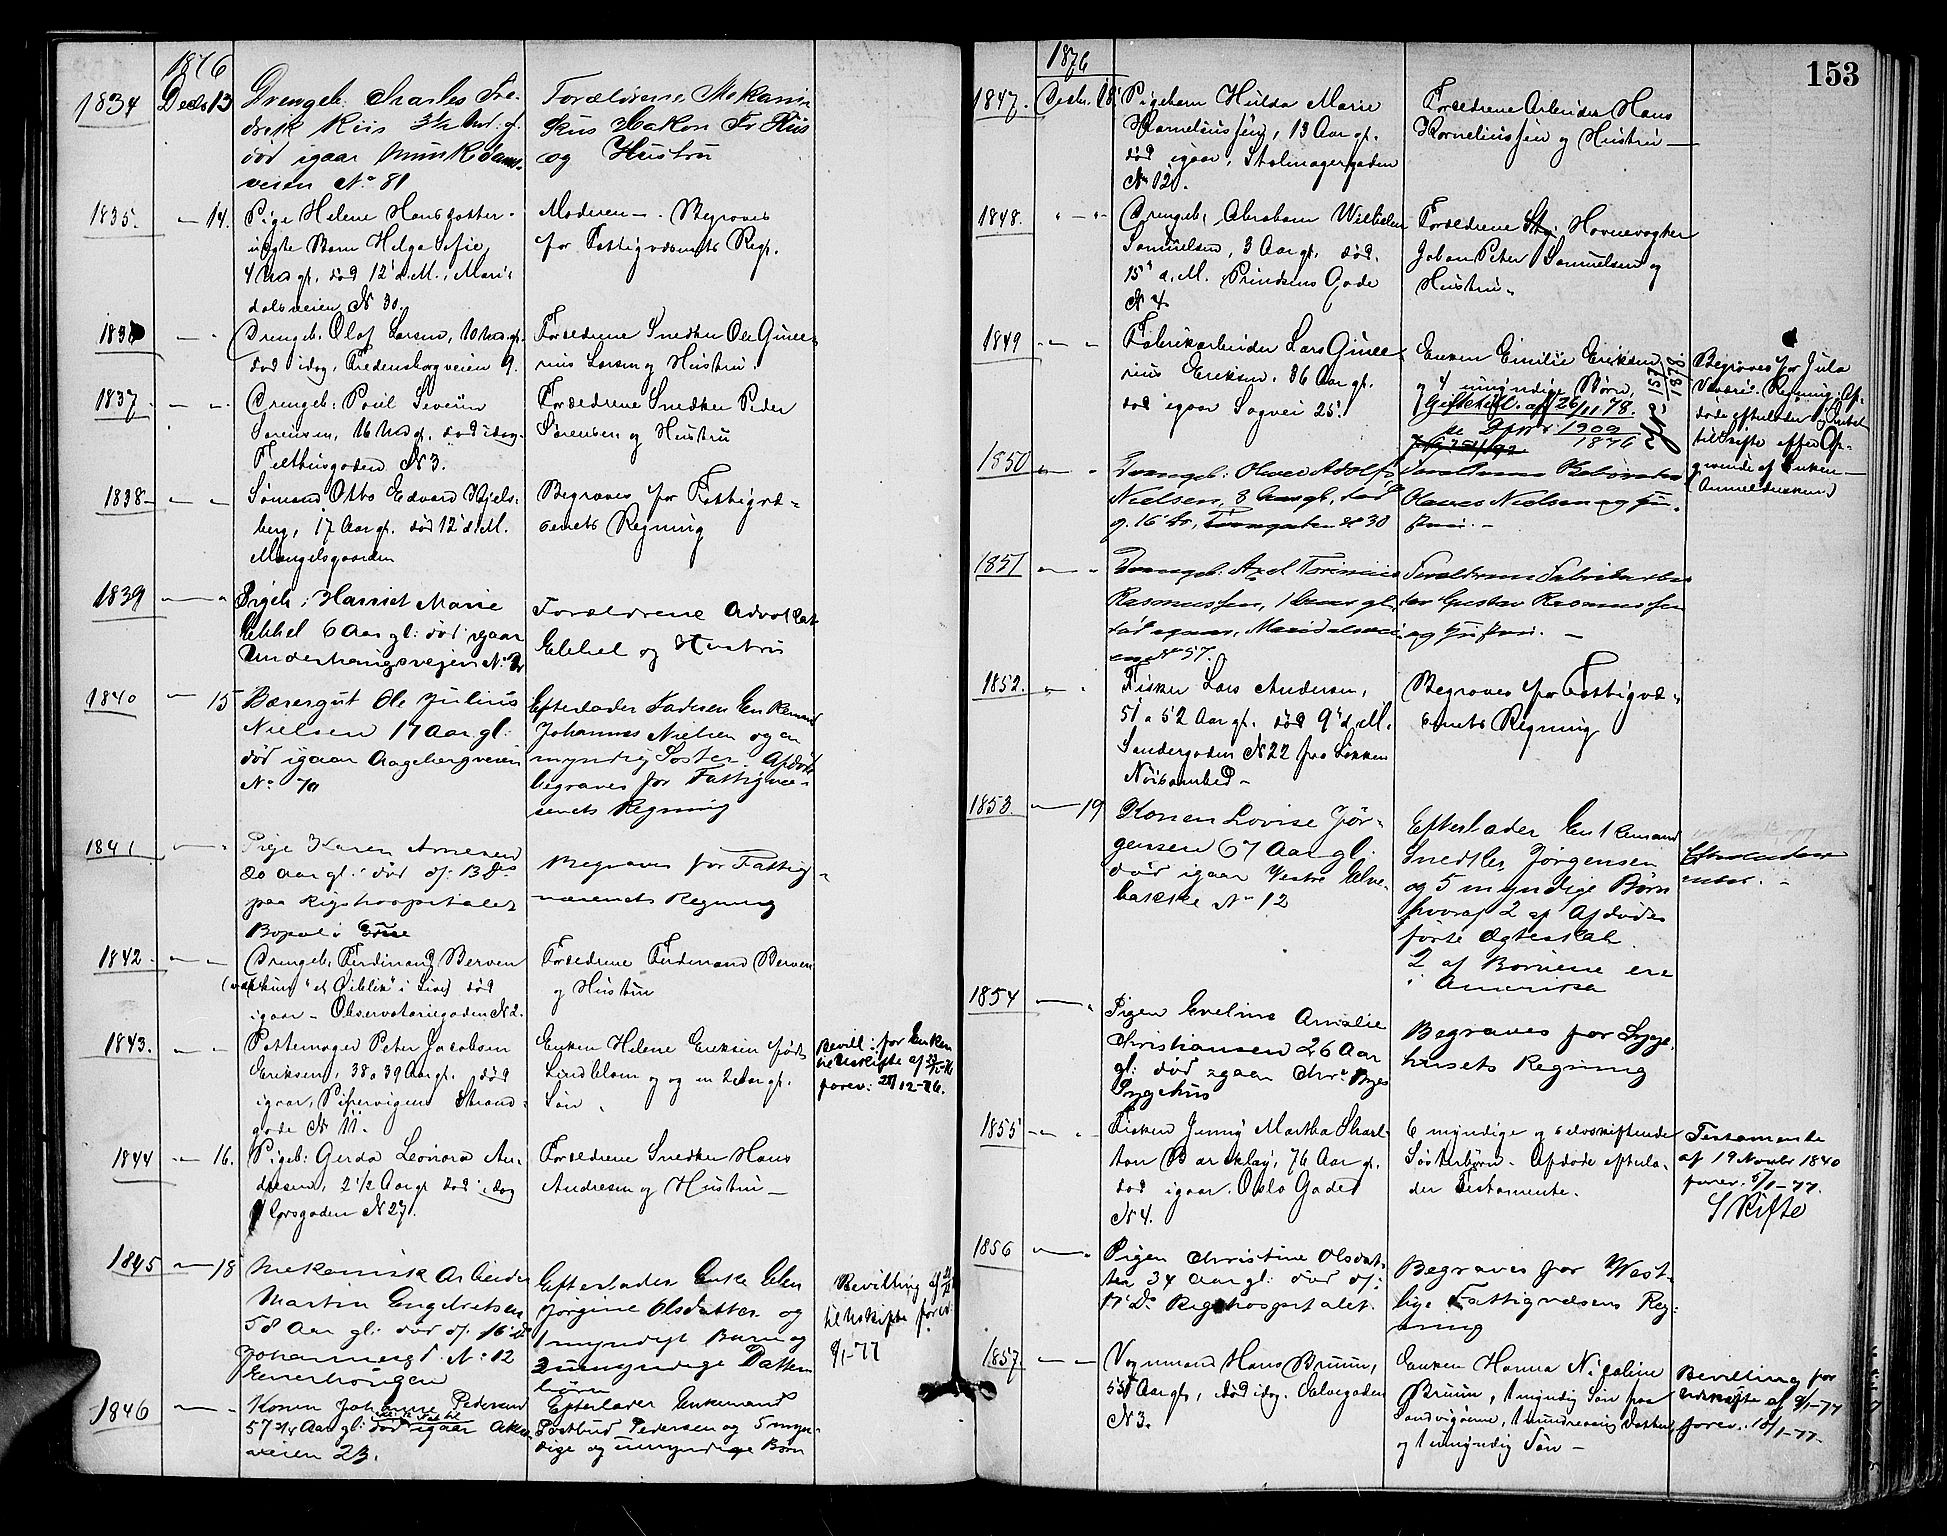 1876
1834 Decb 13 Drengeb. Charles Fre-
drik Kiis 3½ Md. gl.
død igaar Munkedams-
veien No 81
Forældrene Mekanin
kus Hakon Fr Kiis
og Hustru
1835. — 14. Pige Helene Hansdatter
uægte Barn Helga Sofie,
4 Md gl. død 12' d. M. Mari-
dalsveien N 30.
Moderen —. Begraves
for Fattigvæsenets Regn.
Drengeb. Olaf Larsen, 10 Md. gl.
død idag, Fredensborgveien 9.
Forældrene Snedker Ole Gune-
rius Larsen og Hustru.
1837. — — Drengeb: Poul Severin
Sørensen, 16 Md gl. død idag.
Filthusgaden N 3.
Forældrene Snedker Peder
Sørensen og Hustru
1838 — — Sømand Otto Edvard Hjels-
berg, 17 Aar gl. død 12' d. M.
Mangelsgaarden
Begraves for Fattigvæ-
senets Regning
1839 — " Pigeb: Harriet Marie
Ebbel 6 Aar gl: død igaar
Underhaugsveien No
Forældrene Advokat
Ebbel og Hustru
1840 — 15 Bærergut Ole Julius
Nielsen 17 Aar gl:
død igaar Aagebergveien
No 70
Efterlader Faderen Enkemand
Johannes Nielsen og en
myndig Søster. Afdøde
begraves for Fattigvæ-
senets Regning
1841 — " Pige Karen Arnesen
20 Aar gl: død d: 13 Ds
paa Rigshospitalet
Bopæl: Grue
Begraves for Fattig-
væsenets Regning
1842 — — Drengeb. Ferdinand Berven
(var kun "et Øieblik" i Live) død
igaar — Observatoriegaden N 2.
Forældrene Ferdinand Berven
og Hustru
1843. — — Pottemager Peter Jacobsen
Eriksen, 38 a 39 Aar gl. død
igaar, Pipervigens Strand-
gade N 11.
Enken Helene Eriksen født
Lindblom og en 2 Aar gl.
Søn.
Bevill: for Enken
til Uskifte af
forev: 12-76.
1844 — 16. Pigeb: Gerda Leonora An-
dresen, 2½ Aar gl død idag
Korsgaden N 27.
Forældrene Snedker Hans
Andresen og Hustru —
1845 — 18 Mekanisk Arbeider
Martin Engebretsen
58 Aar gl: død d: 16 Ds
Johannesgd. No 12
Enerhougen
Efterlader Enke Elen
Jørgine Olsdatter og
1 myndigt Barn og
2 umyndige Datter-
børn
Bevilling af
til Uskifte forev:
9/1-77
1846 — " Konen Johanne Pedersen
57 3/4 Aar gl: død igaar Akers
veien 23.
Efterlader Enkemand
Postbud Pedersen og 5 myn-
dige og umyndige Børn
153
1876
1847. Decbr. 18 Pigebarn Hulda Marie
Korneliussen, 13 Aar gl.
død igaar, Stolmagergaden
No 12.
Forældrene Arbeider Hans
Korneliussen og Hustru —
1848. " — " Drengeb. Abraham Wilhelm
Samuelsen, 3 Aar gl. død
15' d. M. Prindsens Gade
N 4.
Forældrene Havnevogter
Johan Peter Samuelsen og
Hustru.
1849 — " Fabrikarbeider Lars Gune-
rius Eriksen, 36 Aar gl.
død igaar Sagvei 25.
Enken Emilie Eriksen
og 4 umyndige Børn,
26/11 78.
1900
1876
Begraves for Jula
Regning. Af-
døde efterlader
til Skifte efter Op-
givende af Enken —
(Anmelderken)
1850 — " Drengeb: Oluves Adolf
Nielsen, 3 Aar gl, død
d. 16 ds, Torvgaden No 30
Forældrene
Olaves Nielsen og Hu-
stru. —
1851 — " Drengeb: Axel
Rasmussen, 1 Aar gl,
død igaar, Maridalsvei
en No 57.
Forældrene Fabrikarbei
der Gustav Rasmussen
og Hustru. —
1852. — . Fisker Lars Andersen,
51 a 52 Aar gl. død 9' d. M.
Søndergaden N 22 fra Løkken
Begraves for Fattigvæ-
senets Regning
1853 — 19 Konen Lovise Jør-
gensen 67 Aar gl.
død igaar Vestre Elve-
bakke No 12
Efterlader Enkemand
Snedker Jørgensen
og 5 myndige Børn
hvoraf 2 af Afdødes
første Ægteskab.
2 af Børnene ere
i Amerika
1854 — " Pigen Eveline Amalie
Christiansen 26 Aar
gl: død igaar Chr: Byes
Sygehus
Begraves for Syge-
husets Regning
1855 — " Frøken Jenny Martha Sharl-
ton Barcklay, 76 Aar gl.
død igaar. Oslo Gade
N 4.
6 myndige og selvskiftende
Søsterbørn. Afdøde efterla-
der Testamente.
Testamente
af 19 Novbr 1840
forev. 5/1-77.
Skifte
1856 — " Pigen Christine Olsdat-
ter 34 Aar gl: død d:
17 Ds Rigshospitalet.
Begraves for Vest-
lige Fattigvæsens Reg-
ning
1857 — — Vognmand Hans Bruun,
55 Aar gl, død idag. Elvegaden
N 3.
Enken Hanna Nicoline
Bruun, 1 myndig Søn paa
Sandvigøerne, 1 mindreaarig Datter,
og 1 umyndig Søn —
Bevilling for
Uskifte af 9/1-77
forev. 10/1-77.